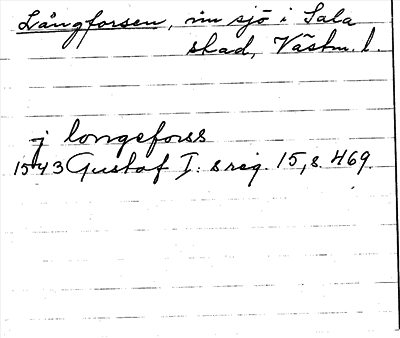 Långforsen, in sjö i Sala
skad, Västm. l.
j longeforss
1543 Gustaf I:s reg. 15, s. 469.